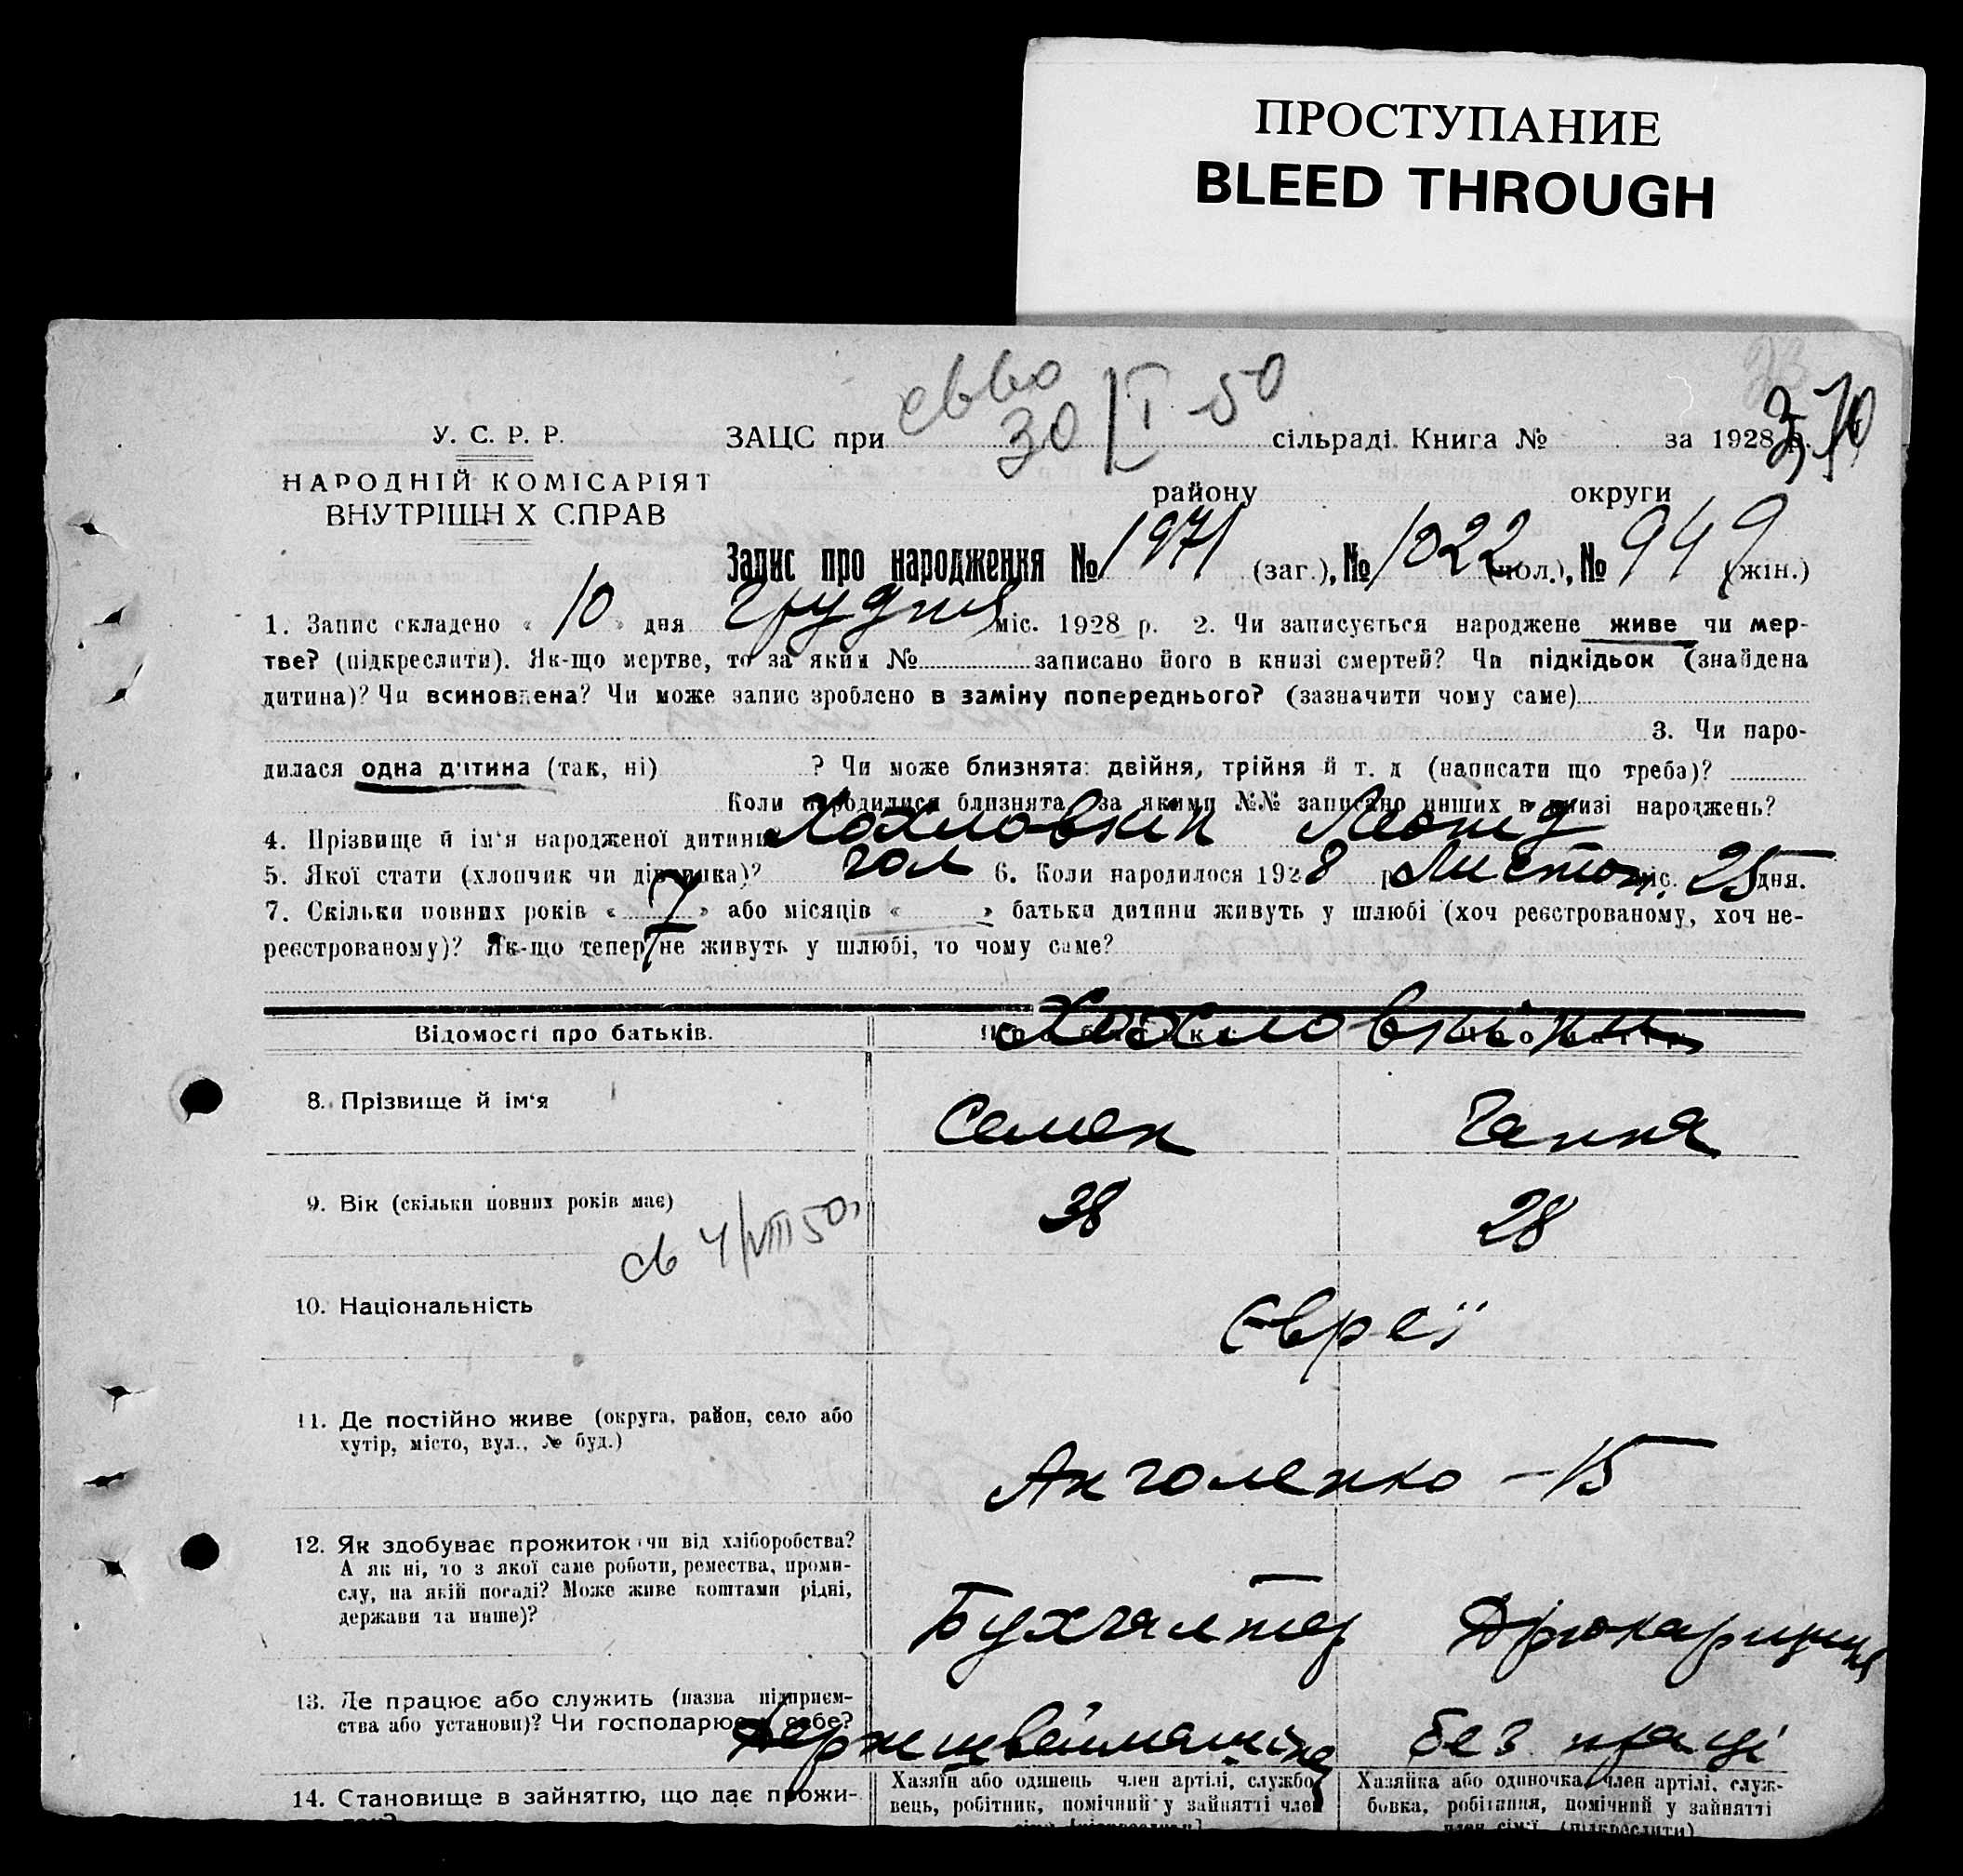 ПРОСТУПАНИЕ
BLEED THROUGH
370
30/I 50
У. С. Р. Р.
НАРОДНІЙ КОМІСАРІЯТ
ВНУТРІШН Х СПРАВ
ЗАЦС при сільраді. Книга № за 1928 р.
району округи
Запис про народження № 1971 (заг.), № 1022 (чол.), № 949 (жін.)
1. Запис складено « 10 » дня грудня міс. 1928 р. 2. Чи записується народжене живе чи мер-
тве? (підкреслити). Як-що мертве, то за яким № записано його в книзі смертей? Чи підкідьок (знайдена
дитина)? Чи всиновлена? Чи може запис зроблено в заміну попереднього? (зазначити чому саме)
3. Чи наро-
дилася одна дитина (так, ні) ? Чи може близнята: двійня, трійня й т. д (написати що треба)?
Коли народилися близнята, за якими №№ записано инших в книзі народжень?
4. Прізвище й ім'я народженої дитини Хохловкін Леонід
5. Якої стати (хлопчик чи дівчинка)? чол 6. Коли народилося 1928 р Листоп. міс. 25 дня.
7. Скільки повних років « 7 » або місяців « » батьки дитини живуть у шлюбі (хоч реєстрованому, хоч не-
реєстрованому)? Як-що тепер не живуть у шлюбі, то чому саме?
Відомості про батьків. Хохловкіни
8. Прізвище й ім'я Семен Ганна
9. Вік (скільки повних років має) 38 28
св 4/VIII 50
10. Національність Євреї
11. Де постійно живе (округа, район, село або
хутір, місто, вул., № буд.)
Анголенко – 15
12. Як здобуває прожиток чи від хліборобства?
А як ні, то з якої саме роботи, ремества, проми-
слу, на якій посаді? Може живе коштами рідні,
держави та инше)?
Бухгалтер Друкарниця
13. Де працює або служить (назва підприєм-
ства або установи)? Чи господарює у себе?
Держшвеймашина без праці
14. Становище в зайняттю, що дає прожи-
Хазяїн або одинець член артілі, службо-
вець, робітник, помічний у зайнятті член
Хазяйка або одиночка, член артілі, служ-
бовка, робітниця, помічний у зайнятті
член сім'ї (підкреслити)